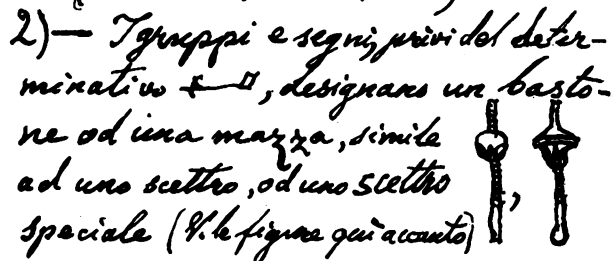 2)— I gruppi e segni, privi del deter-
minativo , designano un basto-
ne od una mazza, simile
ad uno scettro, od uno scettro
speciale (V. le figure quì accanto) ,